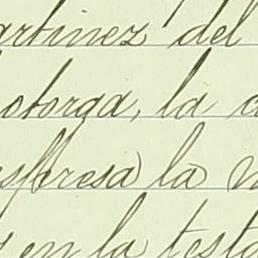 artinez del
otorga, la c
esferesa) la
en la testa